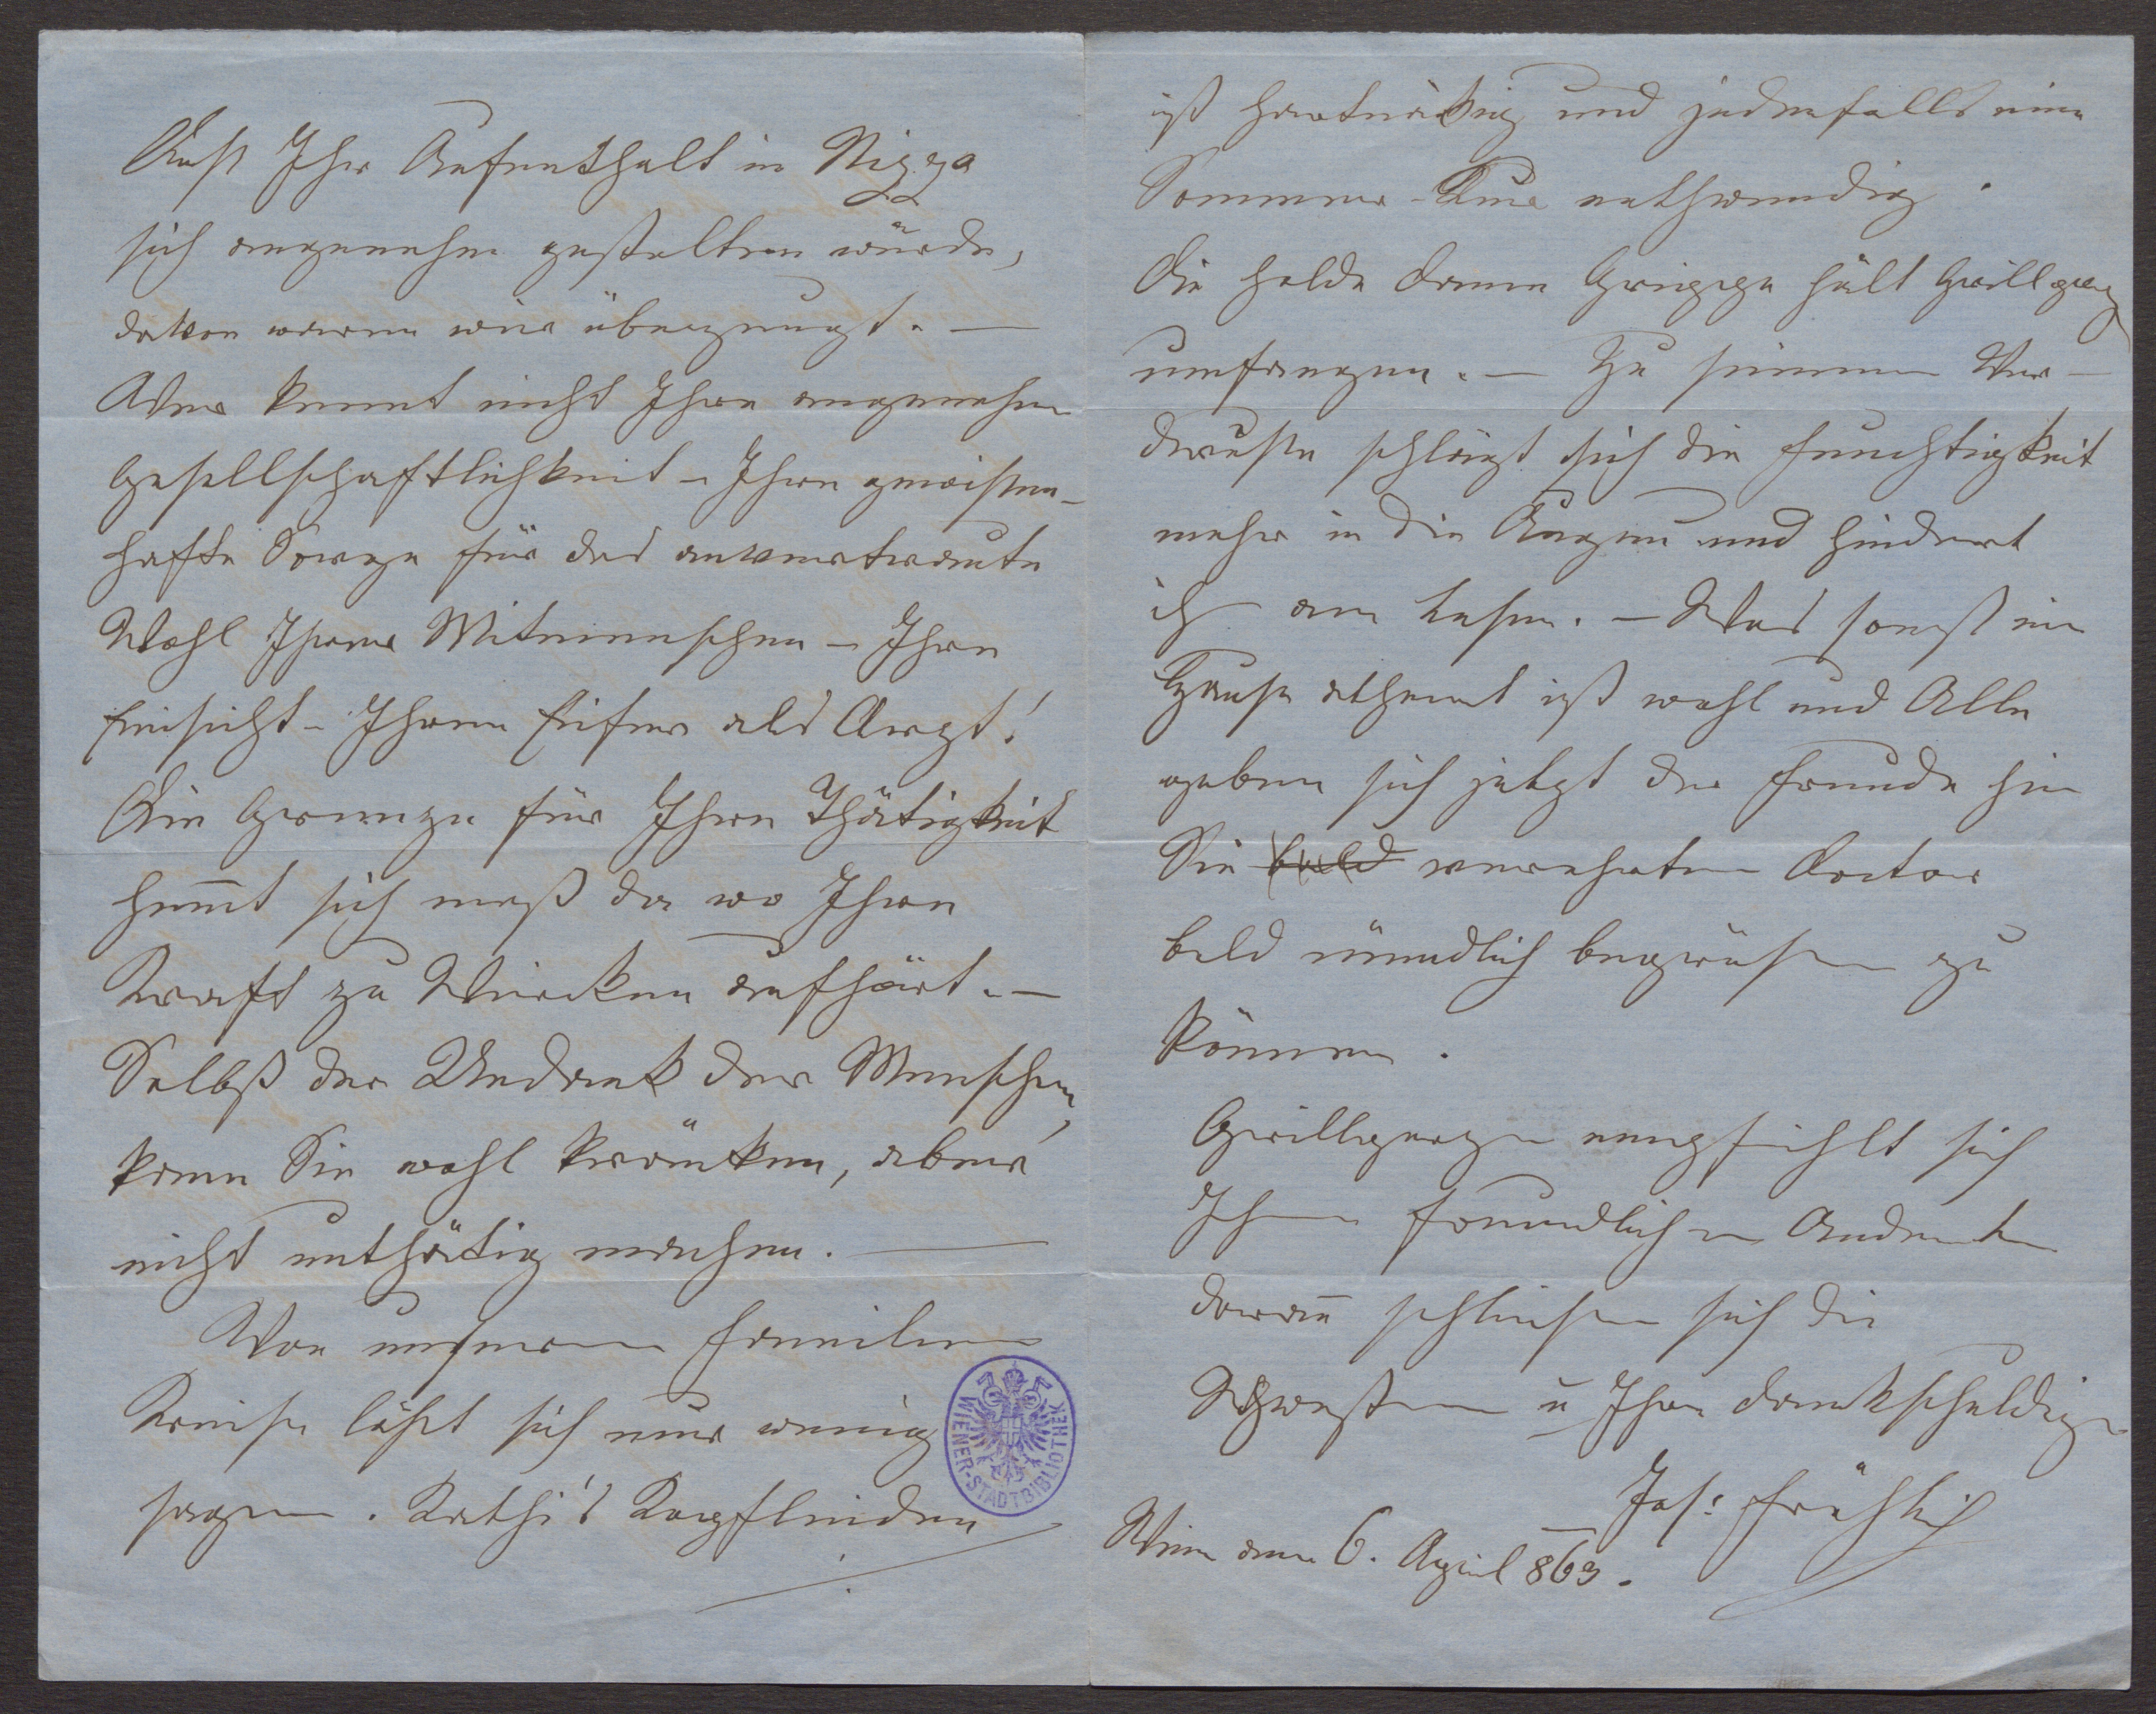 Daß Ihr Aufenthalt in Nizza
sich angenehm gestalten würde,
davon waren wir überzeugt. —
Wer kennt nicht Ihre angenehme
Gesellschaftlichkeit – Ihre gewissen-
hafte Sorge für das anvertraute
Wohl Ihrer Mitmenschen – Ihre
Einsicht – Ihren Eifer als Arzt!
Die Grenze für Ihre Thätigkeit
hem̄t sich erst da wo Ihre
Kraft zu Wircken aufhört. —
Selbst der Undank der Menschen,
kann Sie wohl kränken, aber
nicht unthätig machen. —
Von unserem Familien
Kreise läßt sich nur wenig
sagen. Kathi's Kopfleiden
WIENER-STADTBIBLIOTHEK
ist hartnäkig und jedenfalls eine
Sommer-Kur nothwendig.
Die holde Dame Grippe hält Grillparz
umfangen. — Zu seinem Ver-
druße schlägt sich die Feuchtigkeit
mehr in die Augen und hindert
ih am Lesen. – Was sonst im
Hause athemt ist wohl und Alle
geben sich jetzt der Freude hin
Sie bald verehrten Doctor
bald mündlich begrüßen zu
können.
Grillparzer empfiehlt sich
Ihrem freundlichen Andenken
daran̄ schließen sich die
Schwestern u Ihre dankschuldige
Jos: Fröhlich
Wien am 6. April 869.